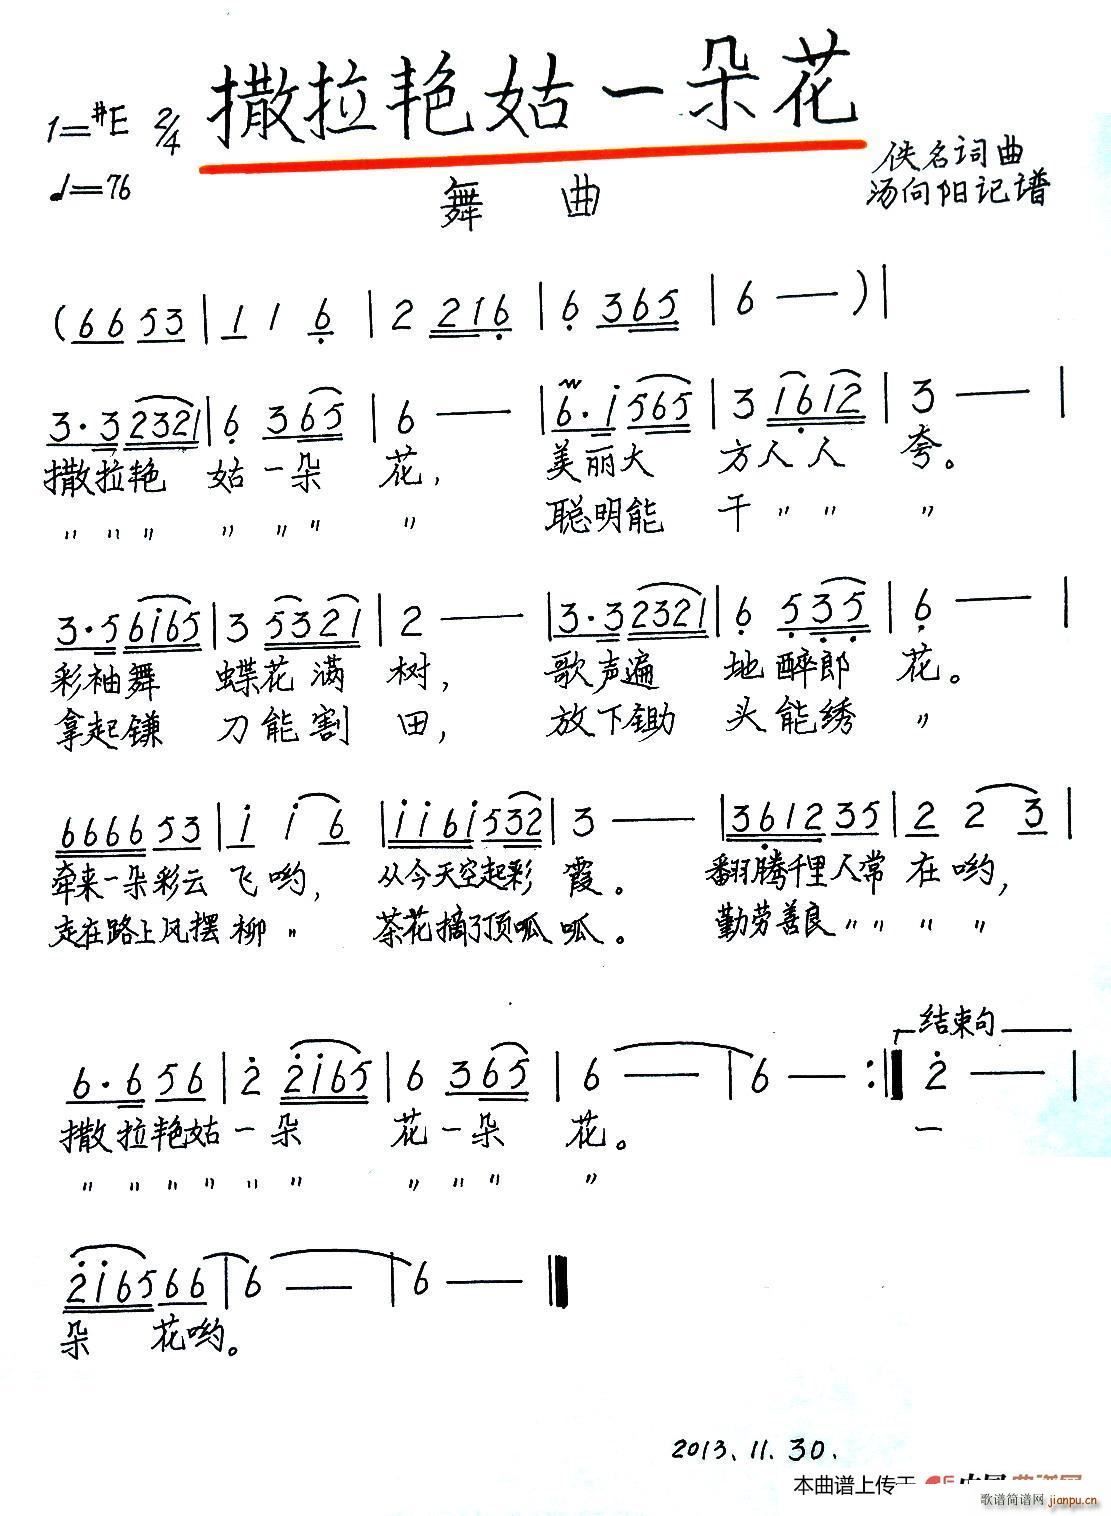 撒拉艳姑一朵花
1=#E 2/4
♩=76
舞 曲
佚名词曲
汤向阳记谱
(6 6 5 3 | 1 1 6 | 2 2 1 6 | 6 3 6 5 | 6 — ) |
3·3 2 3 2 1 | 6 3 6 5 | 6 — | 6·i 5 6 5 | 3 1 6 1 2 | 3 — |
撒拉艳 姑一朵 花, 美丽大 方人人 夸。
〃 〃 〃 〃 〃 〃 〃 聪明能 干 〃 〃 〃
3·5 6 i 6 5 | 3 5 3 2 1 | 2 — | 3·3 2 3 2 1 | 6 5 3 5 | 6 — |
彩袖舞 蝶花满 树, 歌声遍 地醉郎 花。
拿起镰 刀能割 田, 放下锄 头能绣 〃
6 6 6 6 5 3 | i i 6 | i i 6 i 5 3 2 | 3 — | 3 6 1 2 3 5 | 2 2 3 |
牵来一朵彩云 飞哟, 从今天空起彩 霞。 翻腾千里人常 在哟,
走在路上风摆 柳 〃 茶花摘了顶呱 呱。 勤劳善良 〃 〃 〃 〃
结束句
6·6 5 6 | 2 2 i 6 5 | 6 3 6 5 | 6 — | 6 — :‖ 2 — |
撒拉艳姑一朵 花一朵 花。 一
〃 〃 〃 〃 〃 〃 〃 〃 〃 〃
2 i 6 5 6 6 | 6 — | 6 — ‖
朵 花哟。
2013.11.30.
本曲谱上传于
歌谱简谱网 jianpu.cn